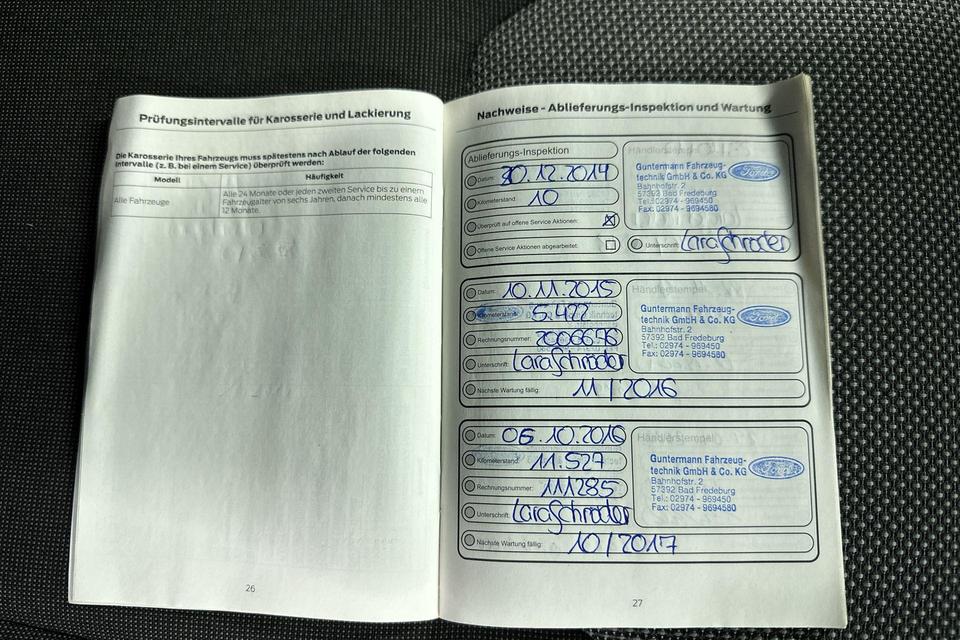 Prüfungsintervalle für Karosserie und Lackierung
Die Karosserie Ihres Fahrzeugs muss spätestens nach Ablauf der folgenden
Intervalle (z. B. bei einem Service) überprüft werden:
Modell Häufigkeit
Alle Fahrzeuge Alle 24 Monate oder jeden zweiten Service bis zu einem
Fahrzeugalter von sechs Jahren, danach mindestens alle
12 Monate.
26
Nachweise - Ablieferungs-Inspektion und Wartung
Ablieferungs-Inspektion
Datum: 30.12.2014
Kilometerstand: 10
Überprüft auf offene Service Aktionen:
Offene Service Aktionen abgearbeitet:
Händlerstempel
Guntermann Fahrzeug-
technik GmbH & Co. KG
Bahnhofstr. 2
57392 Bad Fredeburg
Tel.: 02974 - 969450
Fax: 02974 - 9694580
Ford
Unterschrift: Lara Schröder
Datum: 10.11.2015
Kilometerstand: 5.477
Rechnungsnummer:
Unterschrift: Lara Schröder
Nächste Wartung fällig: 11/2016
Händlerstempel
Guntermann Fahrzeug-
technik GmbH & Co. KG
Bahnhofstr. 2
57392 Bad Fredeburg
Tel.: 02974 - 969450
Fax: 02974 - 9694580
Ford
Datum: 05.10.2016
Kilometerstand: 11.527
Rechnungsnummer: 111285
Unterschrift: Lara Schröder
Nächste Wartung fällig: 10/2017
Händlerstempel
Guntermann Fahrzeug-
technik GmbH & Co. KG
Bahnhofstr. 2
57392 Bad Fredeburg
Tel.: 02974 - 969450
Fax: 02974 - 9694580
Ford
27